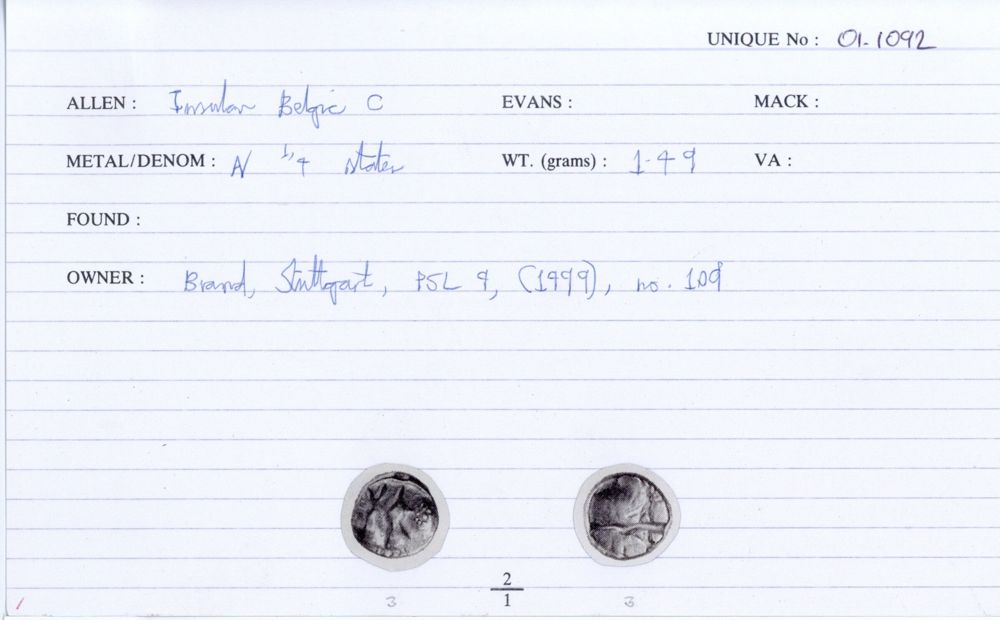 UNIQUE No : 01-1092
ALLEN : Insular Belgic C EVANS : MACK :
METAL/DENOM : AV 1/4 stater WT. (grams) : 1.49 VA :
FOUND :
OWNER : Brand, Stuttgart, PSL 9, (1999), no. 109
2
3 1 3